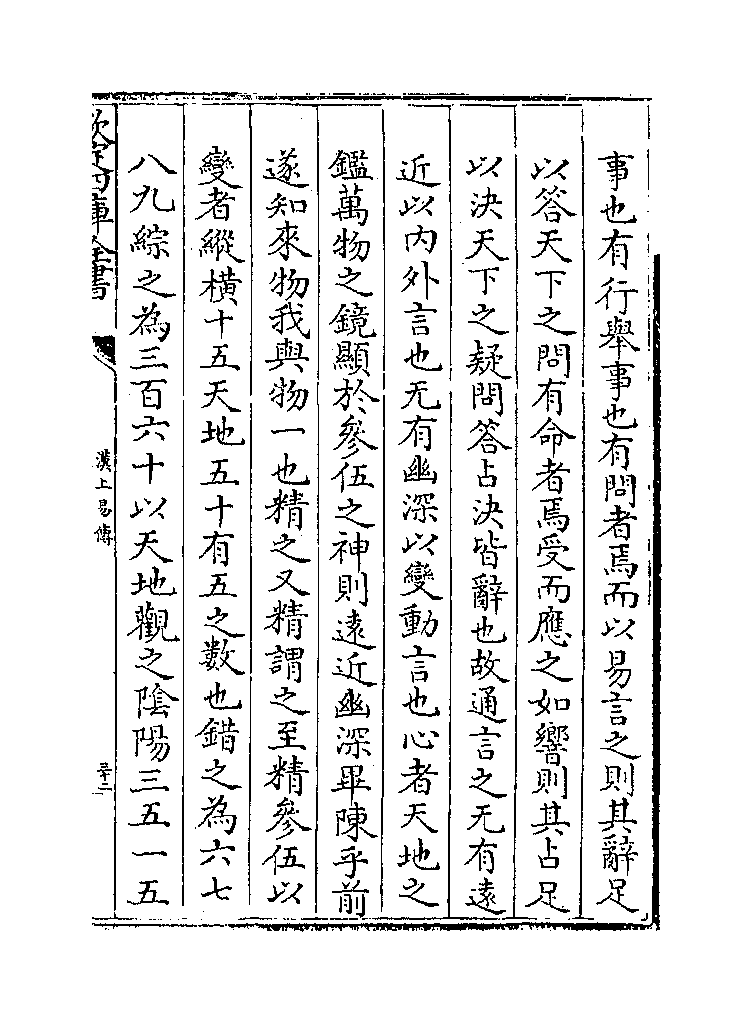 事也有行舉事也有問者焉而以易言之則其辭足
以答天下之問有命者焉受而應之如響則其占足
以決天下之疑問答占決皆辭也故通言之无有遠
近以内外言也无有幽深以變動言也心者天地之
鑑萬物之鏡顯於參伍之神則遠近幽深畢陳乎前
遂知來物我與物一也精之又精謂之至精參伍以
變者縱橫十五天地五十有五之數也錯之為六七
八九綜之為三百六十以天地觀之陰陽三五一五
欽定四庫全書
漢上易傳
三十二